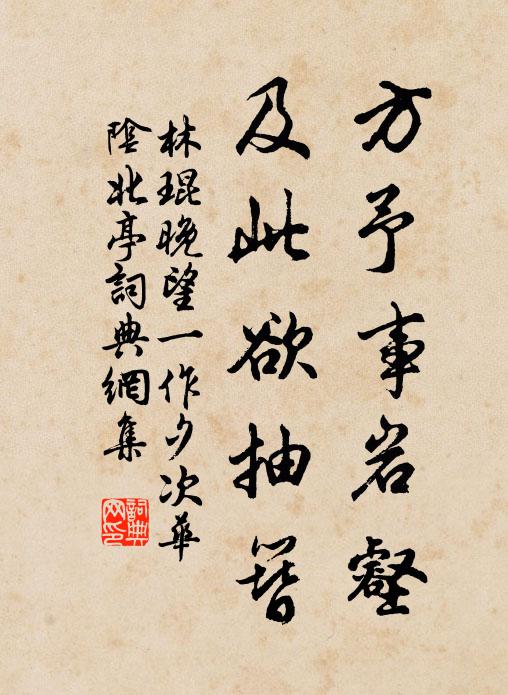 方予事岩壑
及此欲抽簪
林琨晚望一作夕次華
陰北亭詞典網集
詞典网印